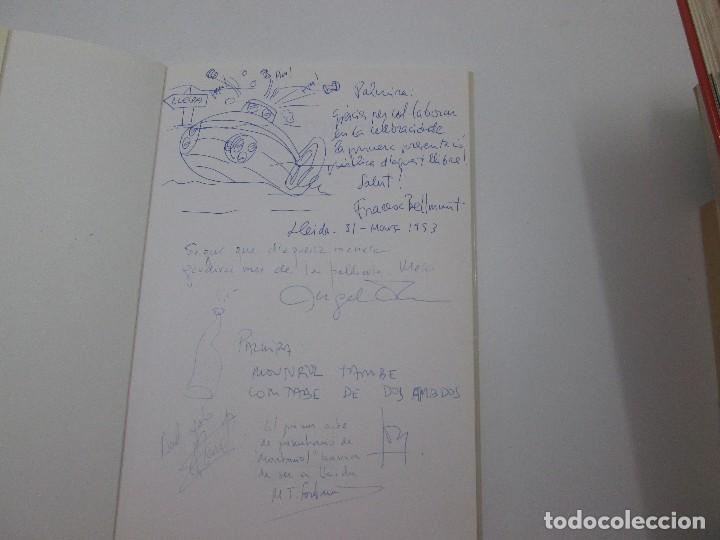 PUM!
LLEIDA
Palmira:
Gràcies per col·laborar
en la celebració de
la primera presentació
pública d'aquest llibre!
Salut!
Francesc Bellmunt
Lleida - 31 - Març 1993
Segur que d'aquesta manera
gaudiràs més de la pel·lícula.
Àngel
PALMIRA
MONTURIOL TAMBE
COMTABE DE DOS AMB DOS
El primer acte
de presentació de
"Monturiol" havia
de ser a Lleida
M.T.
todocoleccion
todocoleccion.net